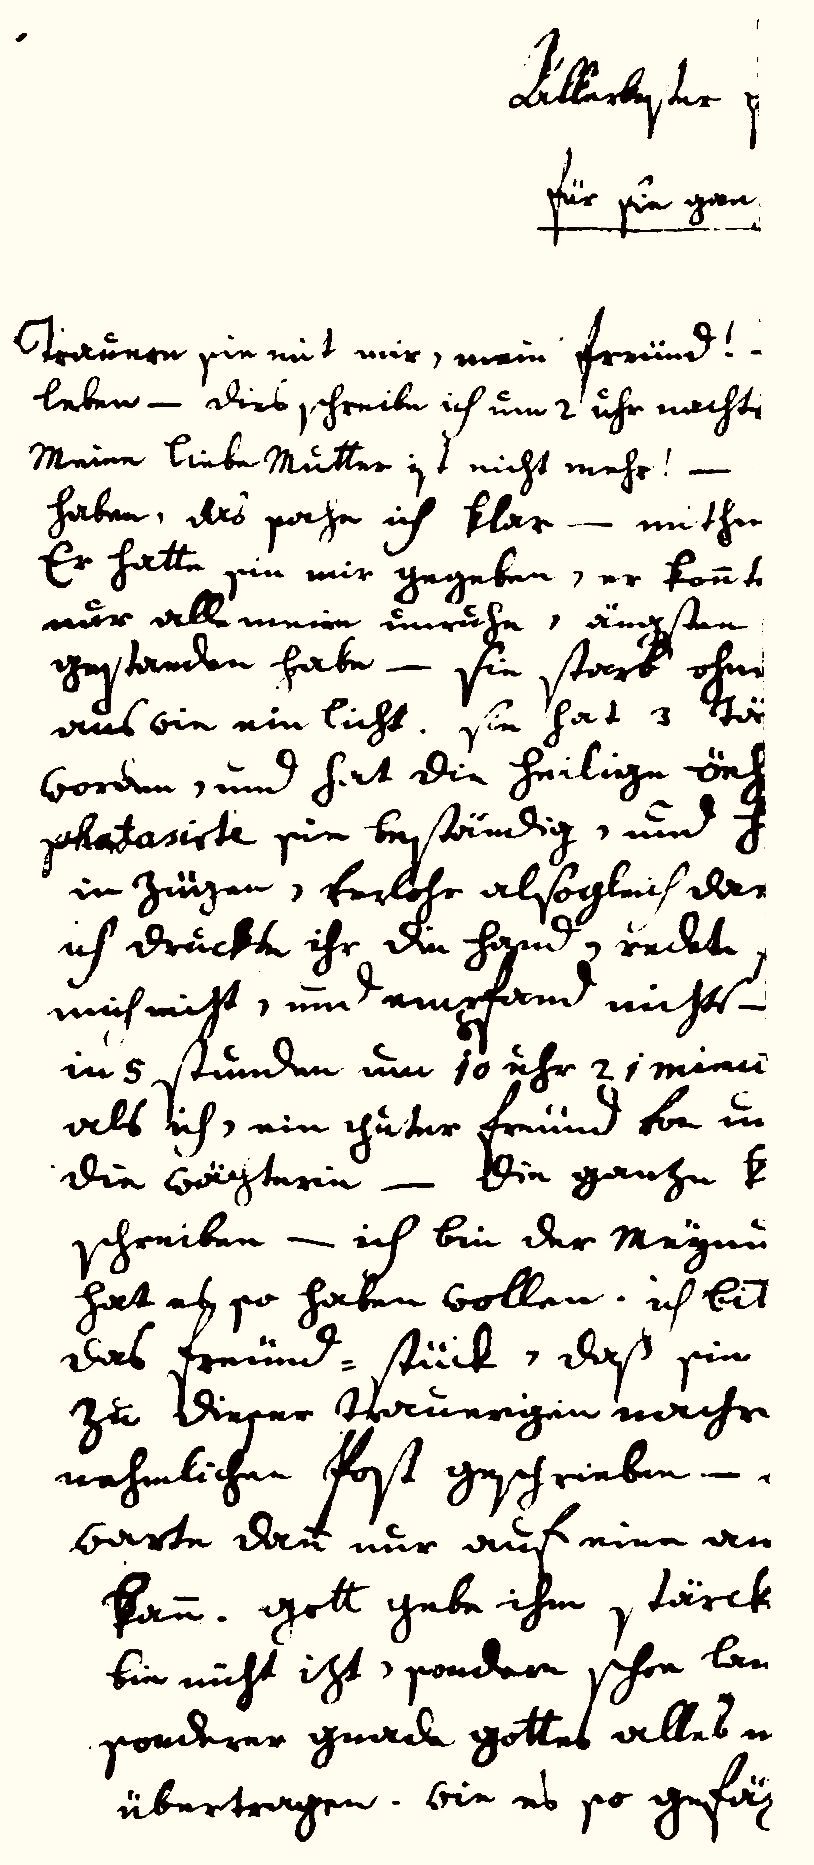 Allerbester
für sie gan
Trauern sie mit mir, mein freünd! -
leben — dies schreibe ich um 2 uhr nachts
Meine liebe Mutter ist nicht mehr! —
haben, das sahe ich klar — mithin
Er hatte sie mir gegeben, er konnte
nur alle meine unruhe, ängsten
gestanden habe — sie starb ohne
aus wie ein licht. sie hat 3 Tä
worden, und hat die heilige öeh
phatasirte sie beständig, und
in Zügen, verlohr alsogleich
ich drückte ihr die hand, redete
mich nicht, und empfand nichts —
in 5 stunden um 10 uhr 21 minu
als ich, ein guter freünd von un
die wächterin — die ganze k
schreiben — ich bin der Meynu
hat es so haben wollen. ich bit
das freünd=stück, daß sie
zu dieser trauerigen nachr
nehmlichen Post geschrieben —
warte dan̄ nur auf eine an
kan̄. gott gebe ihm stärck
bin nicht itzt, sondern schon lan
sonderer gnade gottes alles
übertragen. wie es so gefä